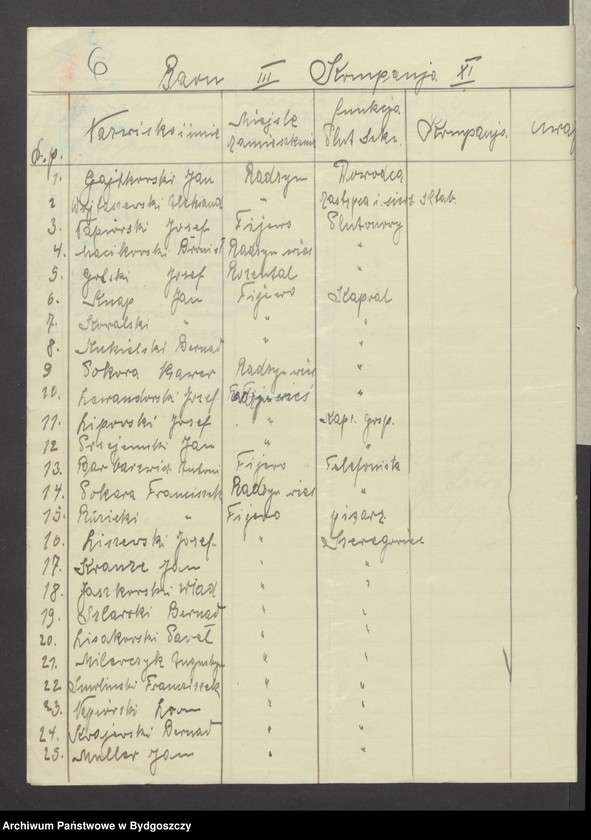 6 Baon III Kompanja XI
L.p. Nazwisko i imię Miejsce zamieszkania funkcja Kompanja uwag
1. Gajkowski Jan Radzyn Dowódca
2 " Zastępca i
3. Napiórski Josef Fijewo Plutonowy
4. Macikowski Bronisł Radzyn wieś "
5. Golski Josef Rozental "
6. Knap Jan Fijewo Kapral
7. Kowalski " " "
8. Kukielski Bernad " "
9 Sokora Radzyn wieś "
10. Lewandowski Josef "
11. Lipowski Josef " Kapr. gosp.
12 Jan "
13. Barbarewicz Antoni Fijewo Telefonista
14. Sokora Franciszek Radzyn wieś "
15. " Fijewo pisarz
16. Liszewski Josef " Szeregowiec
17. Kranze Jan " "
18. Jaszkowski Wład " "
19. Szlarski Bernad " "
20. Lisakowski Paweł " "
21. Milewczyk Augustyn " "
22 Smoliński Franciszek " "
23. Napiórski Leon " "
24. Krajewski Bernad " "
25. Muller Jan " "
Archiwum Państwowe w Bydgoszczy